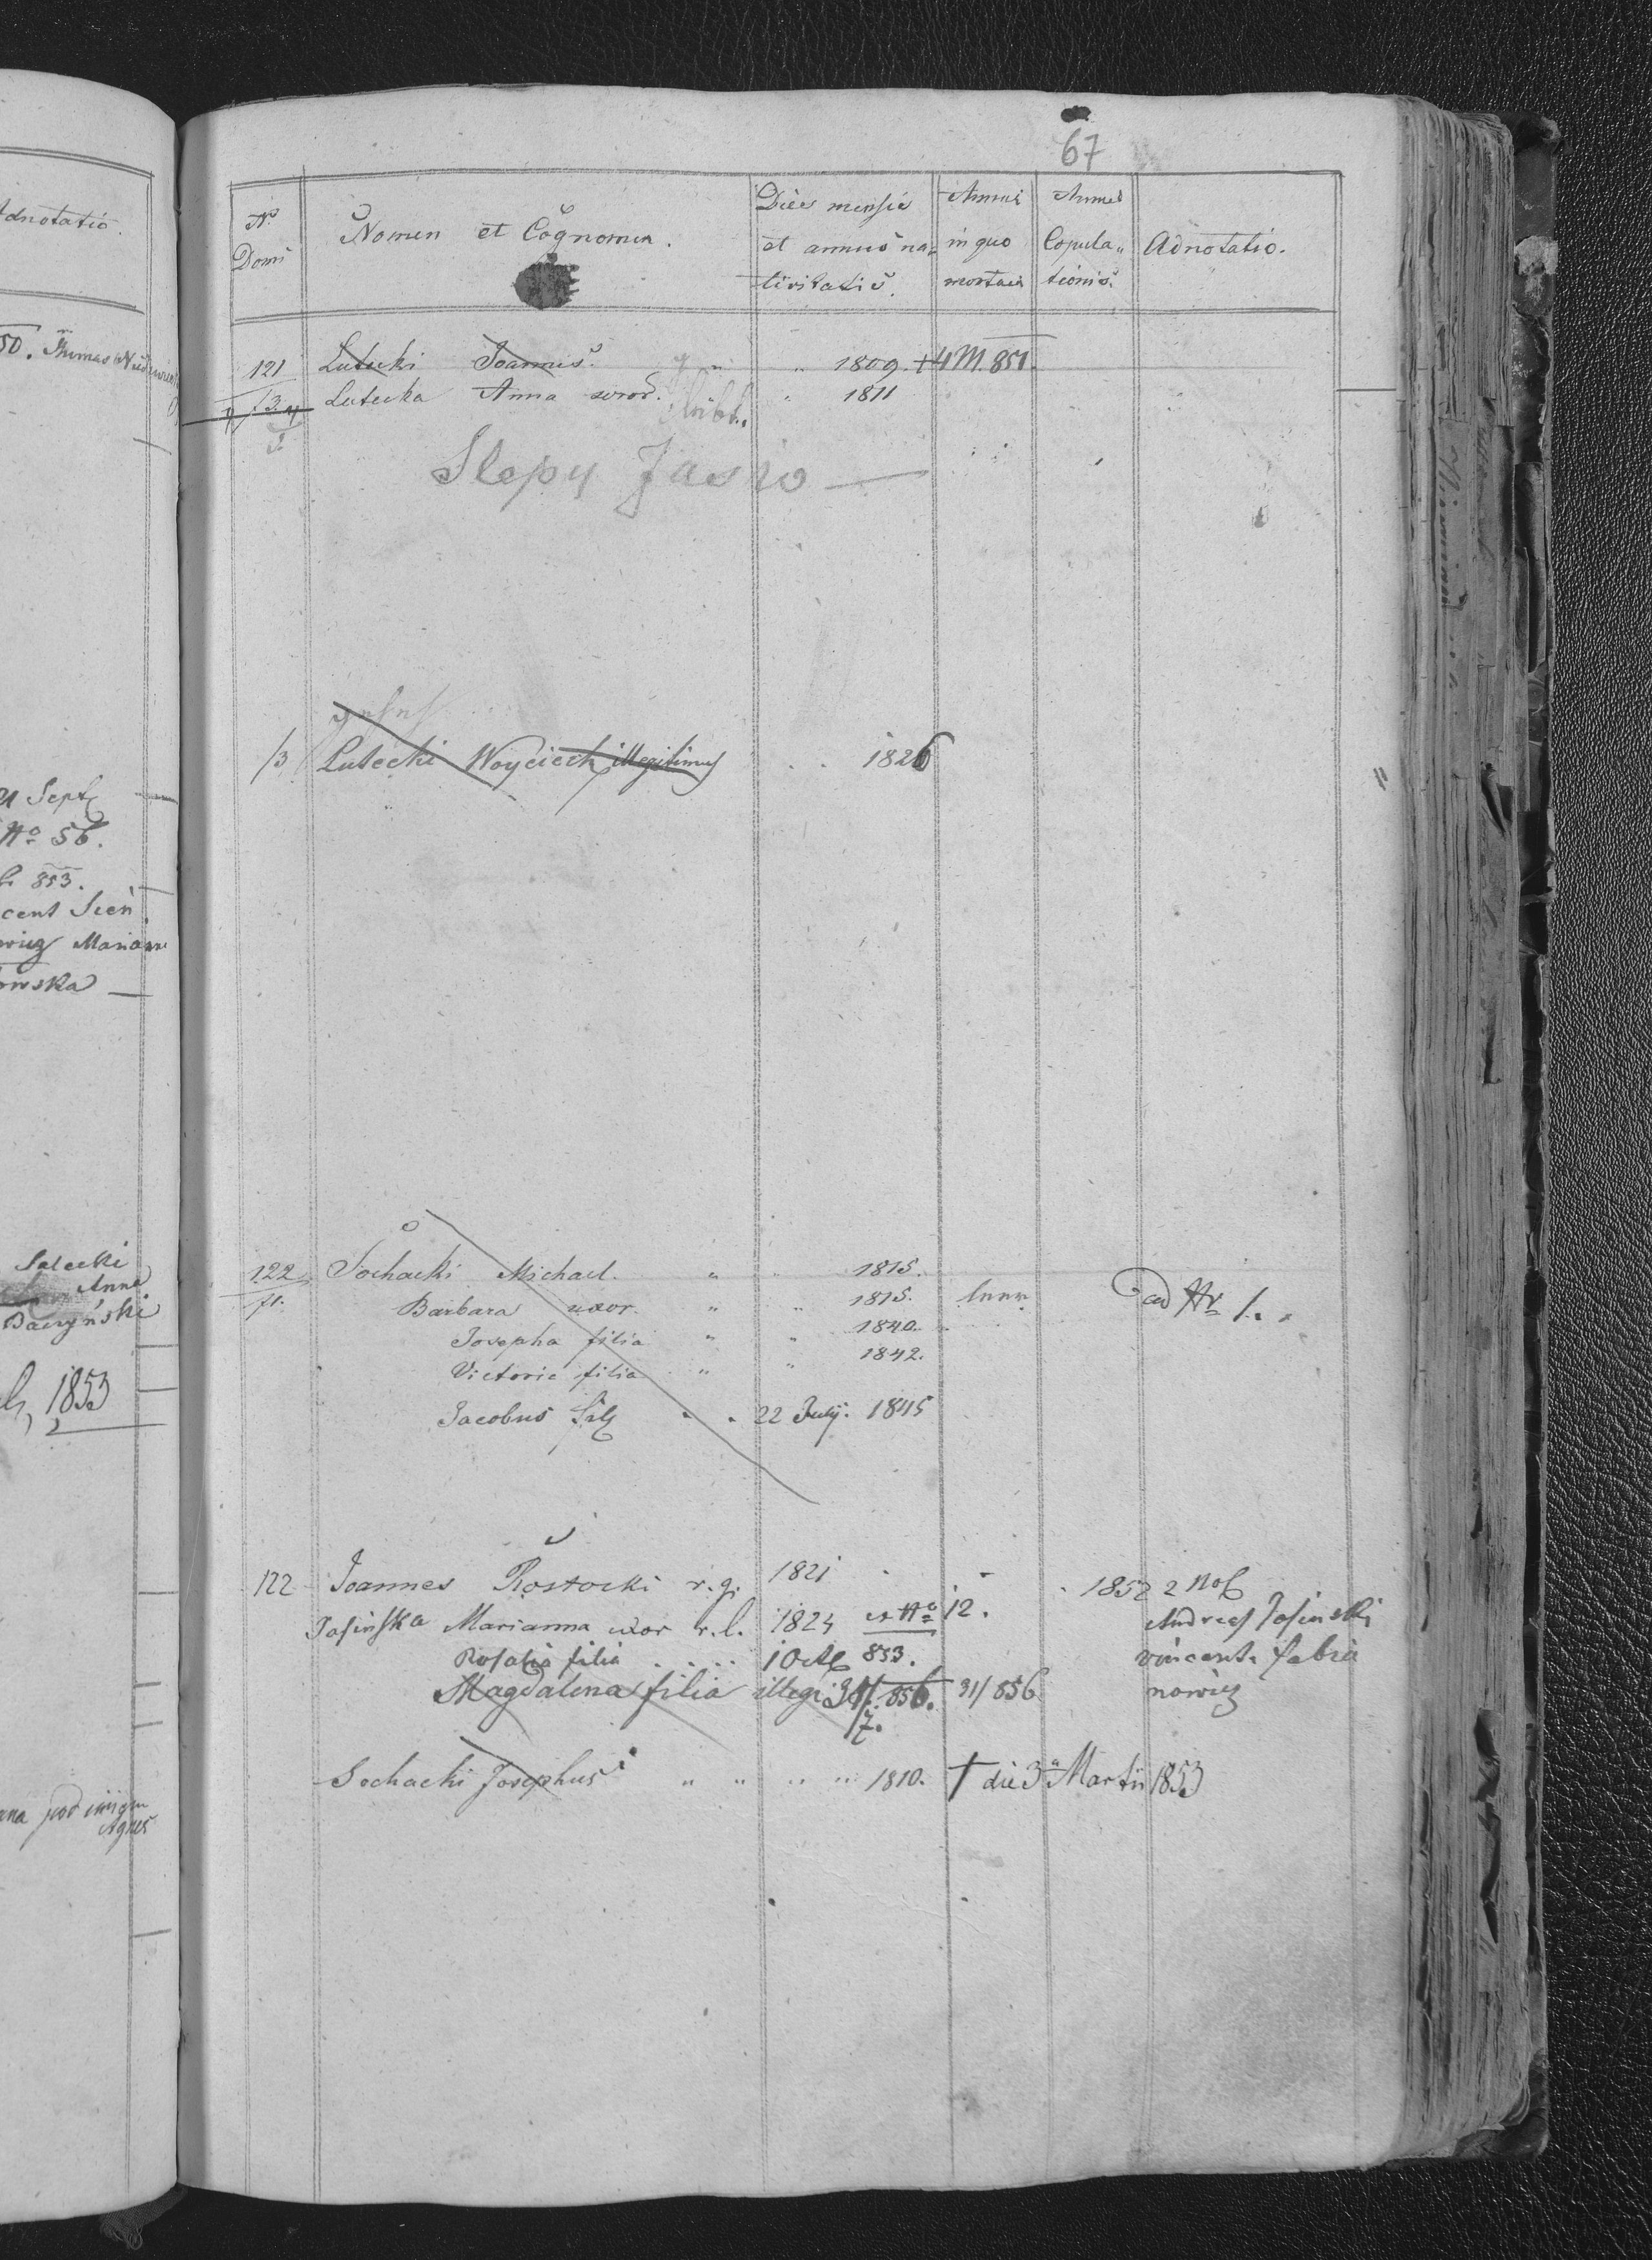 Adnotatio.
50. Thomas
21 Sept
No 56.
853.
cent Sień
wicz Mariann
owska
Salecki
Anna
Baczyński
1853
pod innym
Agnes
67
No. Domi
Nomen et Cognomen.
Dies mensis et annus nativitatis.
Annus in quo mortuus
Annus Copulationis.
Adnotatio.
121 Lutecki Joannes. " " 1809. + 4 M. 851.
Lutecka Anna soror. " 1811
Slepy Jasio —
/3 Lutecki Woyciech illegitimus . . 1826
122 Sochacki Michael. " " 1815.
71. Barbara uxor. " " 1815. ad Nr 1.
Josepha filia " " 1840.
Victoria filia " " 1842.
Jacobus fil " . 22 July. 1845
122 Joannes Rostocki r. g. 1821 . - . 1852 2 Nov
Jasińska Marianna uxor r. l. 1824 ex No 12. Andreas Jasinski
Rosalia filia . . . . 1 Oct 853. vincent. fabia
Magdalena filia illegi 31/7. 856. 31/856 nowicz
Sochacki Josephus " " " " 1810. † die 3a Martii 1853